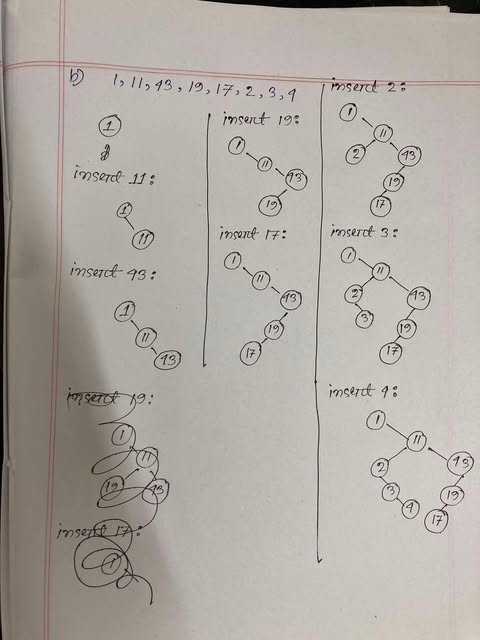 b) 1, 11, 43, 19, 17, 2, 3, 4
1
insert 11:
1
11
insert 43:
1
11
43
insert 19:
1
11
19 43
insert 17:
1
insert 19:
1
11
43
19
insert 17:
1
11
43
19
17
insert 2:
1
11
2 43
19
17
insert 3:
1
11
2 43
3 19
17
insert 4:
1
11
2 43
3 19
4 17